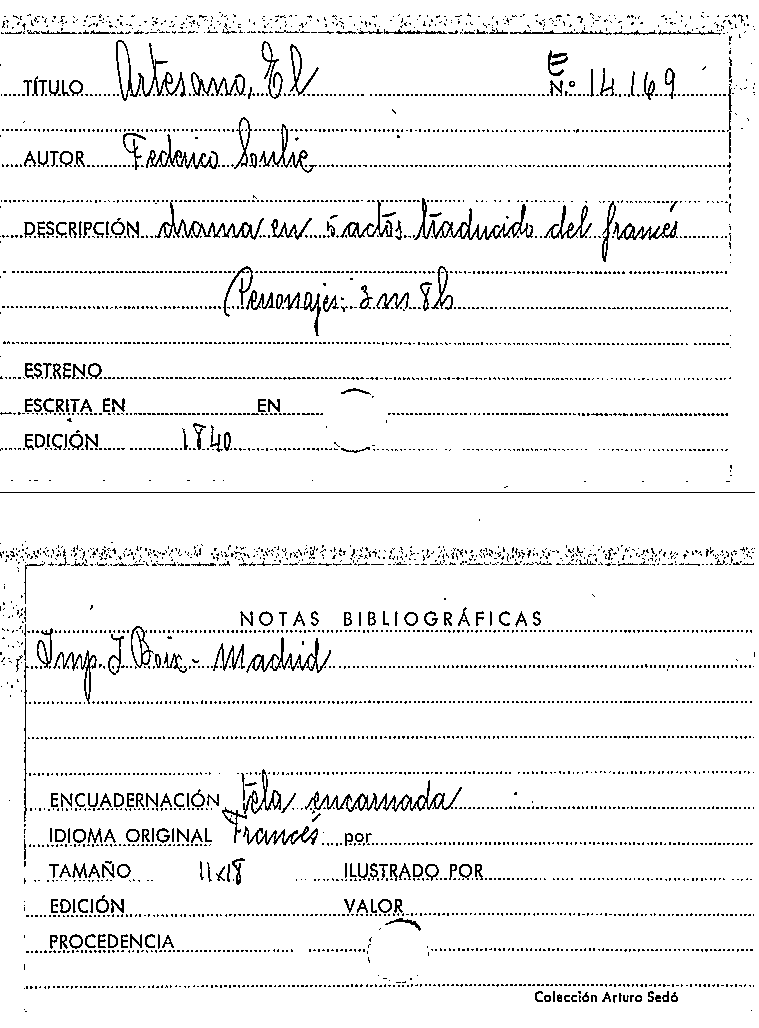 TÍTULO Artesano, El E N.º 14169
AUTOR Federico Soulie
DESCRIPCIÓN drama en 5 actos traducido del francés
(Personajes; 3 m 8 h
ESTRENO
ESCRITA EN EN
EDICIÓN 1840
NOTAS BIBLIOGRÁFICAS
Imp. J Boix - Madrid
ENCUADERNACIÓN tela encarnada
IDIOMA ORIGINAL Francés por
TAMAÑO 11x18 ILUSTRADO POR
EDICIÓN VALOR
PROCEDENCIA
Colección Arturo Sedó